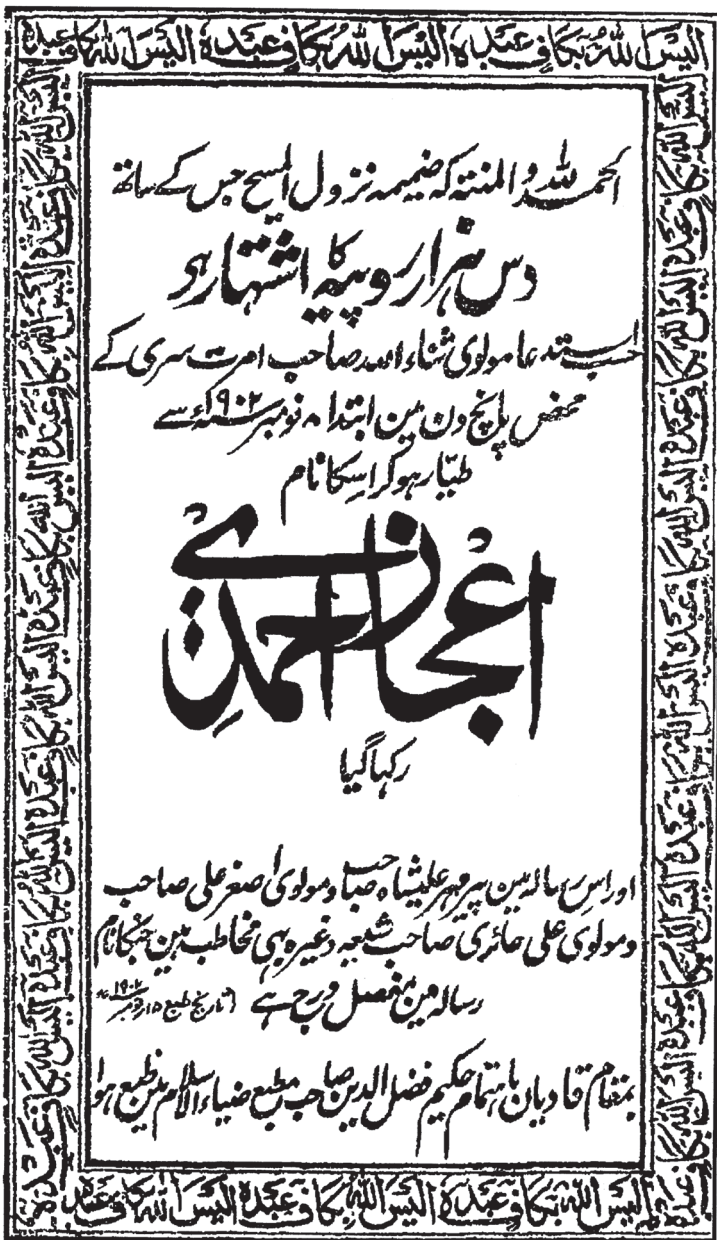 الیس اللہ بکاف عبدہ الیس اللہ بکاف عبدہ الیس اللہ بکاف عبدہ
الحمد للہ والمنتہ کہ ضمیمہ نزول المسیح جس کے ساتھ
دس ہزار روپیہ کا اشتہار ہو
حسب استدعا مولوی ثناء اللہ صاحب امرت سری کے
محض پانچ دن مین ابتدا ۸ نومبر ۱۹۰۲ء سے
طیّار ہو کر اسکا نام
اعجاز احمدی
رکہا گیا
اور اس رسالہ مین پیر مہر علیشاہ صاحب و مولوی اصغر علی صاحب
و مولوی علی حائری صاحب شیعہ وغیرہ بہی مخاطب ہین جنکا نام
رسالہ مین مفصل درج ہے (تاریخ طبع ۱۵ نومبر ۱۹۰۲ء
بمقام قادیان باہتمام حکیم فضل الدین صاحب مطبع ضیاء الاسلام مین طبع ہوا
الیس اللہ بکاف عبدہ الیس اللہ بکاف عبدہ الیس اللہ بکاف عبدہ